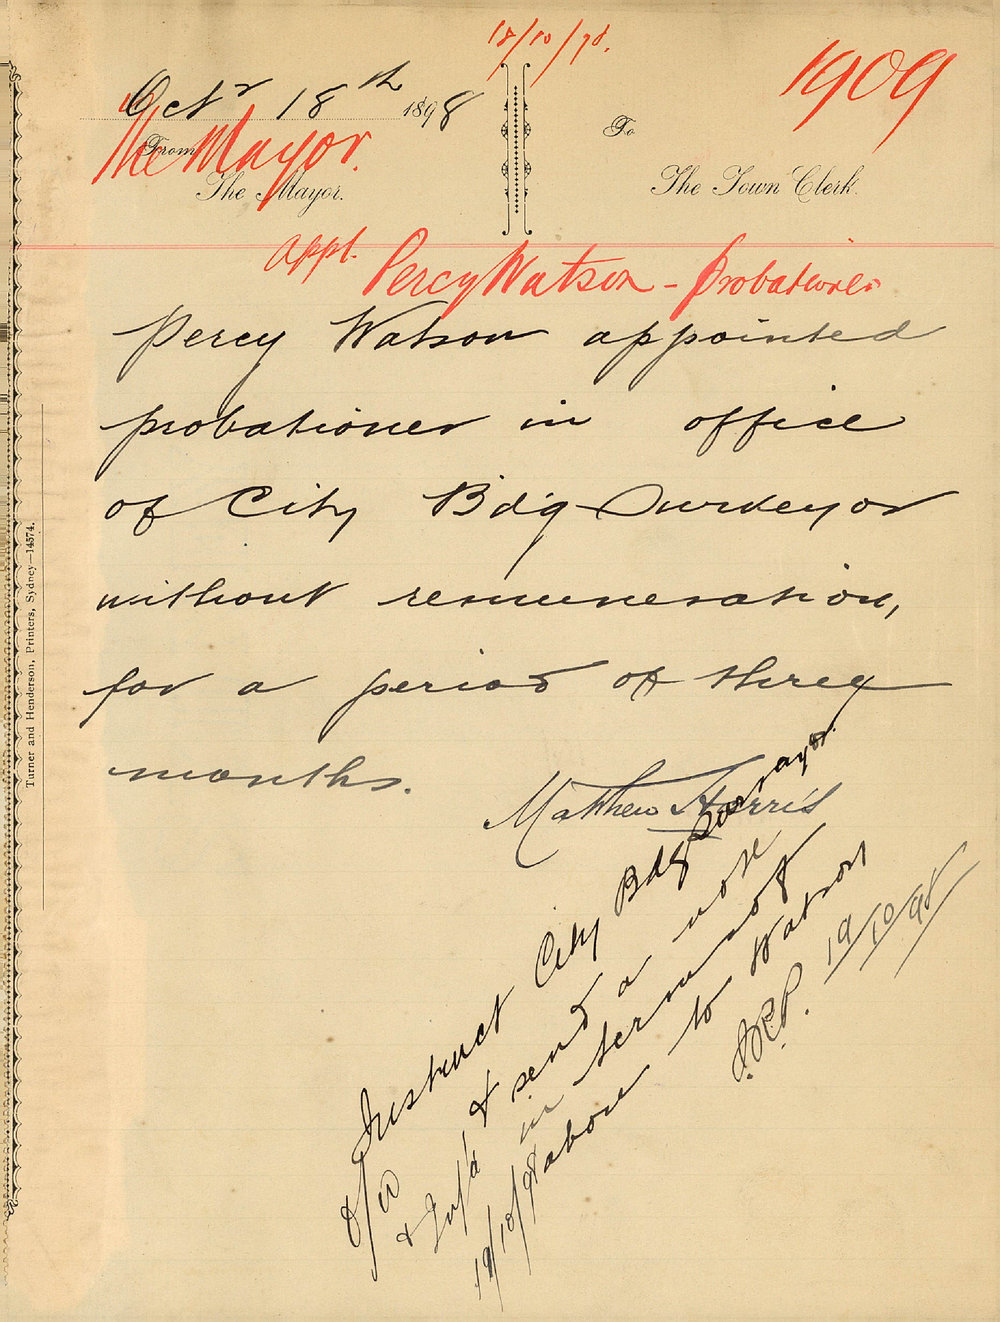 18/10/98.
1909
Octr 18th 1898
The Mayor.
From
To
The Mayor.
The Town Clerk.
appt. Percy Watson - Probationer
Percy Watson appointed
probationer in office
of City Bdg Surveyor
without remuneration,
for a period of three
months.
Matthew Harris
Instruct City Bdg Surveyor
& send a note
in terms of
above to Watson
19/10/98
& Inf'd
19/10/98
Turner and Henderson, Printers, Sydney—14574.